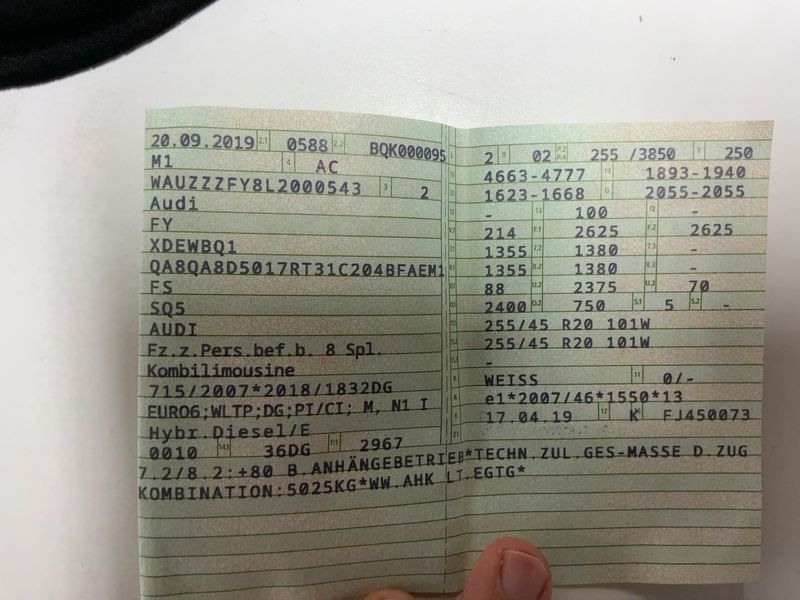 20.09.2019 2.1 0588 2.2 BQK000095
M1 4 AC
WAUZZZFY8L2000543 3 2
Audi
FY
XDEWBQ1
QA8QA8D5017RT31C204BFAEM1
FS
SQ5
AUDI
Fz.z.Pers.bef.b. 8 Spl.
Kombilimousine
715/2007*2018/1832DG
EURO6;WLTP;DG;PI/CI; M, N1 I
Hybr.Diesel/E
0010 14.1 36DG P.1 2967
L 2 9 02 P.2 P.4 255 /3850 T 250
18 4663-4777 19 1893-1940
20 1623-1668 G 2055-2055
12 - 13 100 Q -
V.7 214 F.1 2625 F.2 2625
7.1 1355 7.2 1380 7.3 -
8.1 1355 8.2 1380 8.3 -
U.1 88 U.2 2375 U.3 70
O.1 2400 O.2 750 S.1 5 S.2 -
15.1 255/45 R20 101W
15.2 255/45 R20 101W
15.3 -
R WEISS 11 0/-
K e1*2007/46*1550*13
6 17.04.19 17 K 16 FJ450073
21
7.2/8.2:+80 B.ANHÄNGEBETRIEB*TECHN.ZUL.GES-MASSE D.ZUG
KOMBINATION:5025KG*WW.AHK LT.EGTG*